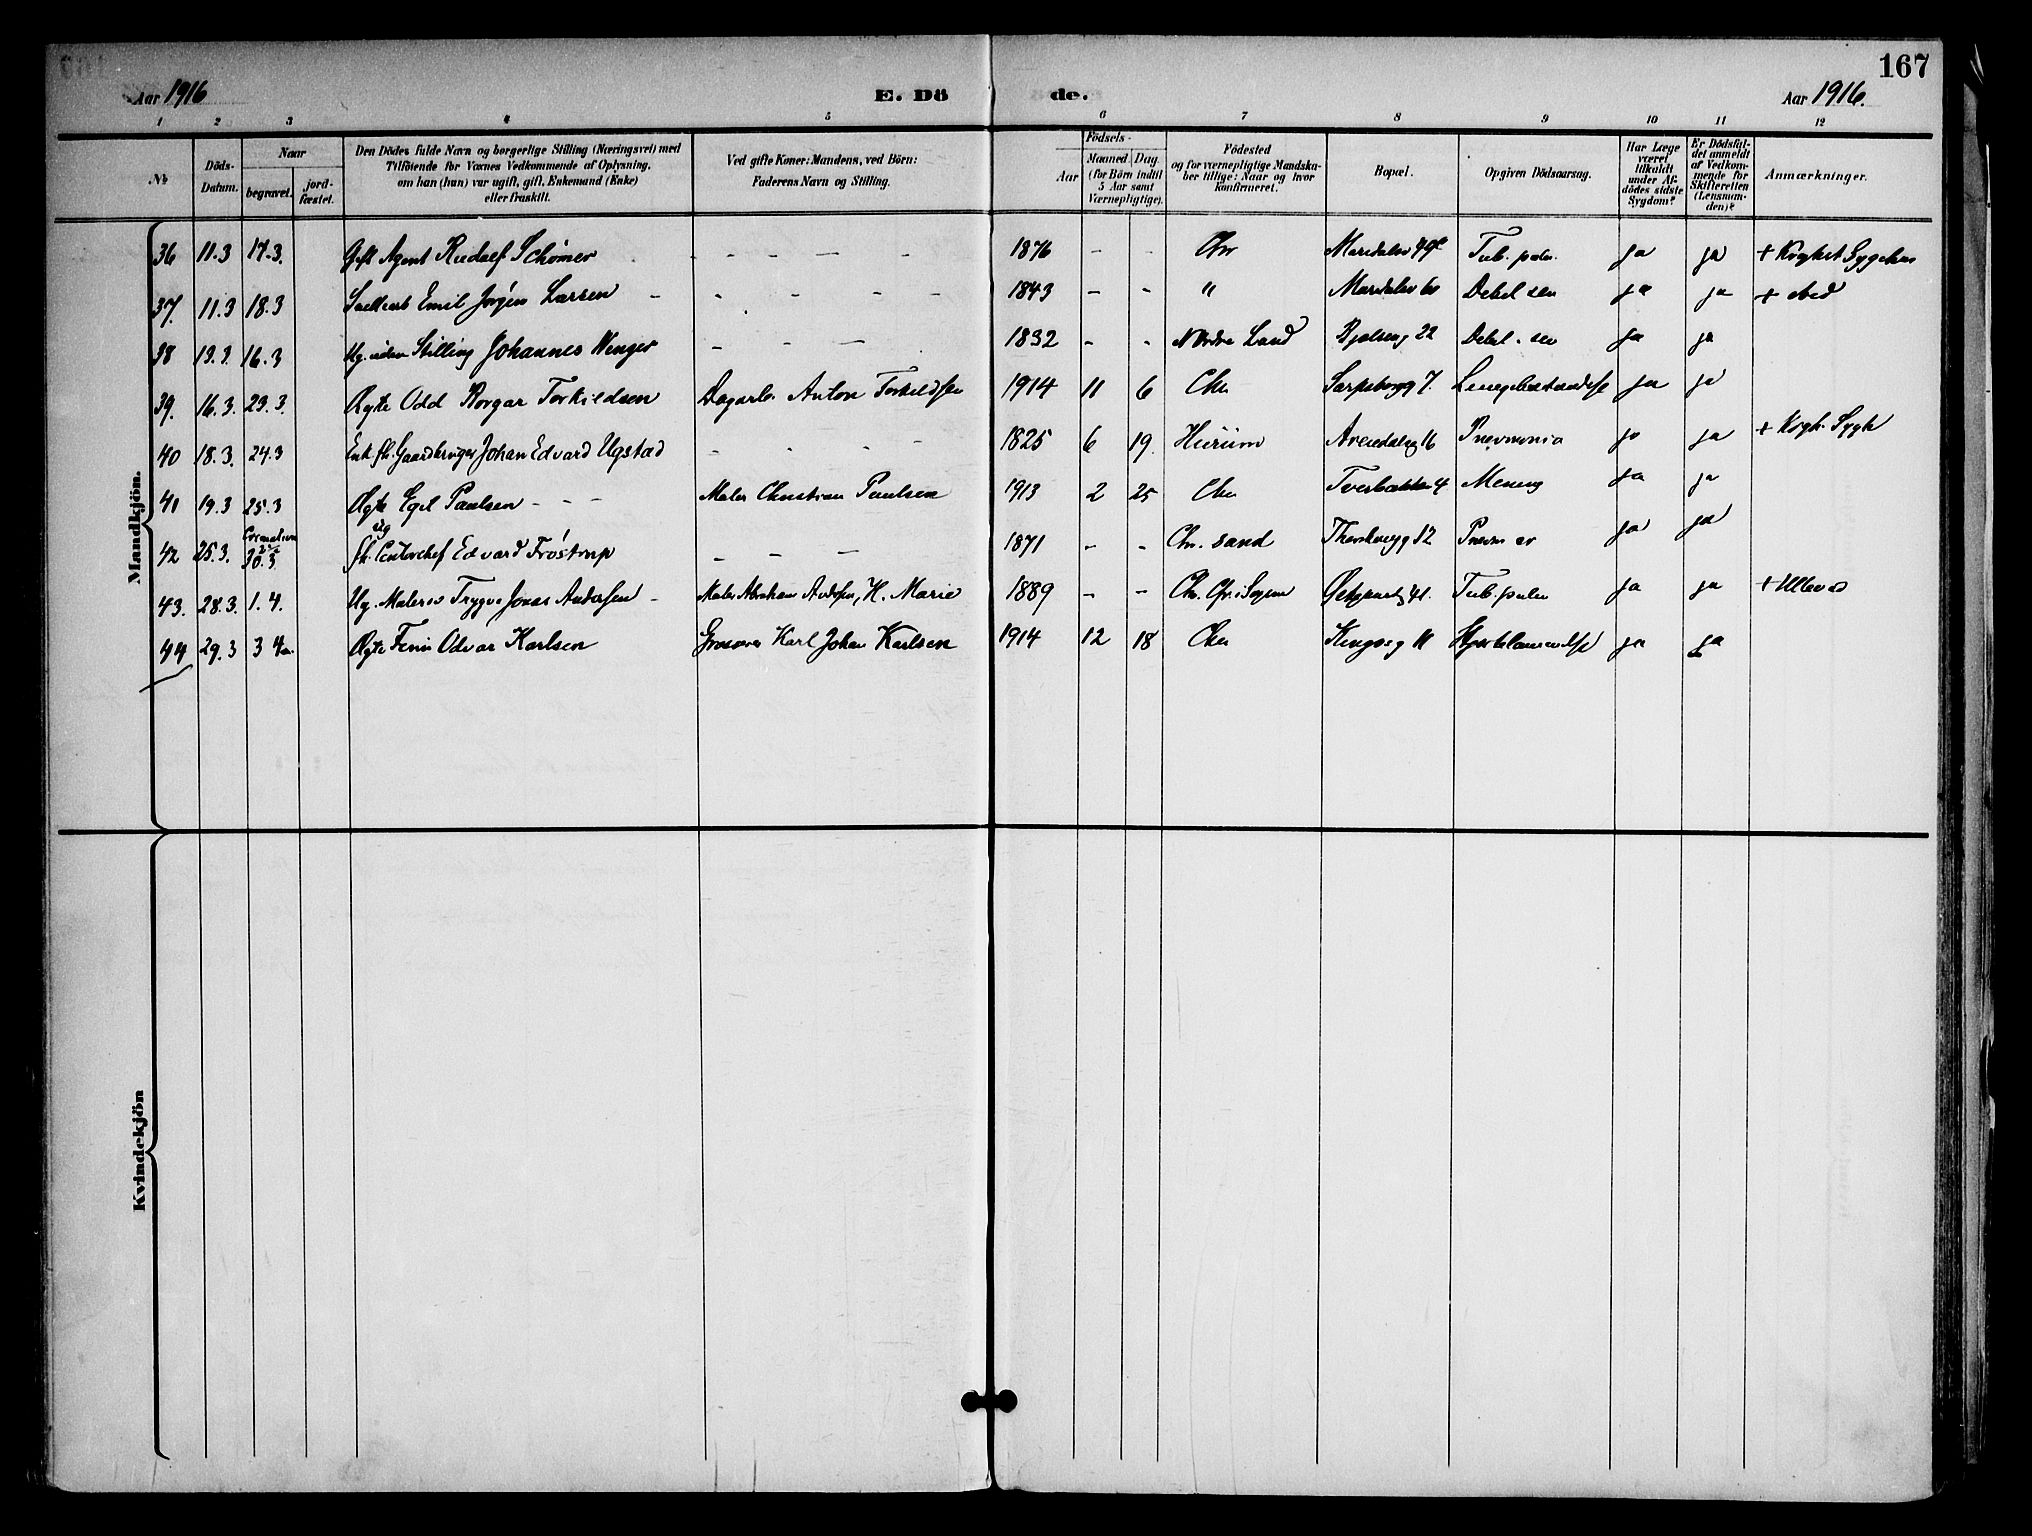 167
Aar 1916
E. Dö de.
Aar 1916.
1 2 3 4 5 6 7 8 9 10 11 12
№
Döds-Datum.
Naar
begravet.
jord-fæstet.
Den Dödes fulde Navn og borgerlige Stilling (Næringsvei) med
Tilföiende for Voxnes Vedkommende af Oplysning,
om han (hun) var ugift, gift, Enkemand (Enke)
eller fraskilt.
Ved gifte Koner: Mandens, ved Börn:
Faderens Navn og Stilling.
Födsels-
Aar
Maaned. Dag.
(for Börn indtil
5 Aar samt
Værnepligtige).
Födested
og for værnepligtige Mandska-
ber tillige: Naar og hvor
konfirmeret.
Bopæl.
Opgiven Dödsaarsag.
Har Læge
været
tilkaldt
under Af-
dödes sidste
Sygdom?
Er Dödsfal-
det anmeldt
af Vedkom-
mende for
Skifteretten
(Lensman-
den)?
Anmærkninger.
Mandkjön.
36 11.3 17.3. Gift Agent Rudolf Schømer - - - - 1876 - - Chr Tub. pulm. ja ja
37. 11.3 18.3 Emil Jørgen Larsen - - - - - 1843 - - " Debel. sen ja ja
38 16.3 Ug. uden Stilling Johannes Wenger - - - - - Nordre Land 22 Debel. sen ja ja
39. 16.3. 23.3. Ægte Odd Borgar Torkildsen Dagarb. Anton Torkildsen 1914 11 6 Chr Sarpsborgg 7. ja ja
40 18.3. 24.3 Enk. fh. Gaardbruger Johan Edvard Ugstad - - - - 1825 6 19. Hurum Arendalsg 16 Pnevmonia ja ja
41 19.3 25.3 Ægte Egil Paulsen - - - Maler Christian Paulsen 1913 2 25 Chr Tverbakken 4 Mening ja ja
42 25.3. Cremation 30.3 ug fh. Contorchef Edvard Frøstrup - - - 1871 - - Chr. sand 12 ja ja
43. 28.3. 1.4. Ug. Malersv Trygve Jonas Andersen - Maler Abraham Andersen, H. Marie 1889 - - Tub. pulm ja ja + Ullevaal
44 29.3 3 4 Ægte Finn Odvar Karlsen Karl Johan Karlsen 1914 12 18 Chr ja ja
Kvindekjön